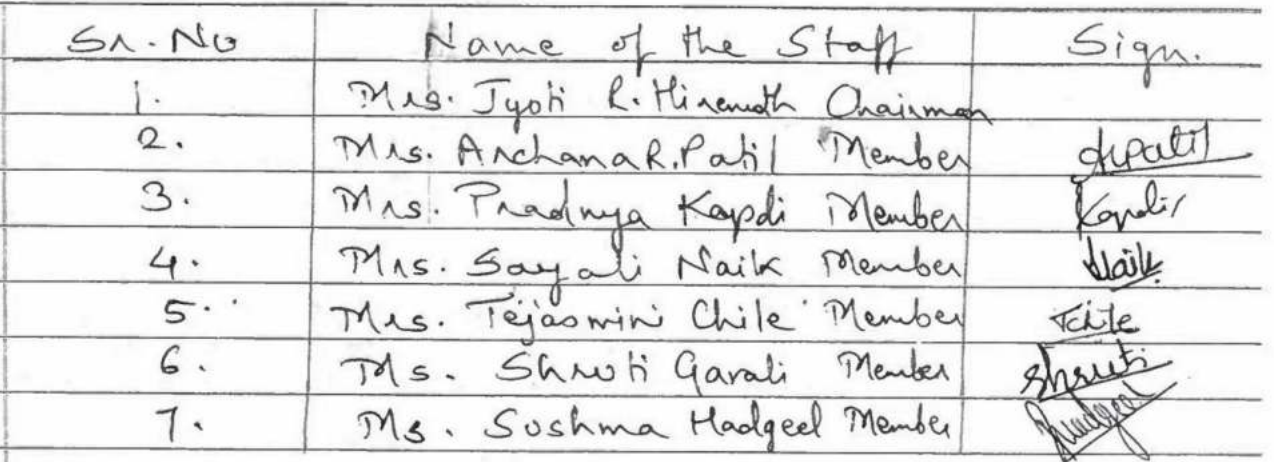 Sr. No Name of the Staff Sign.
1. Mrs. Jyoti R. Hiremath Chairman
2. Mrs. Archana R. Patil Member Arpatil
3. Mrs. Pradnya Kapdi Member Kapdi
4. Mrs. Sayali Naik Member Naik
5. Mrs. Tejasmini Chile Member Tchile
6. Ms. Shruti Gavali Member Shruti
7. Ms. Sushma Hadgeel Member